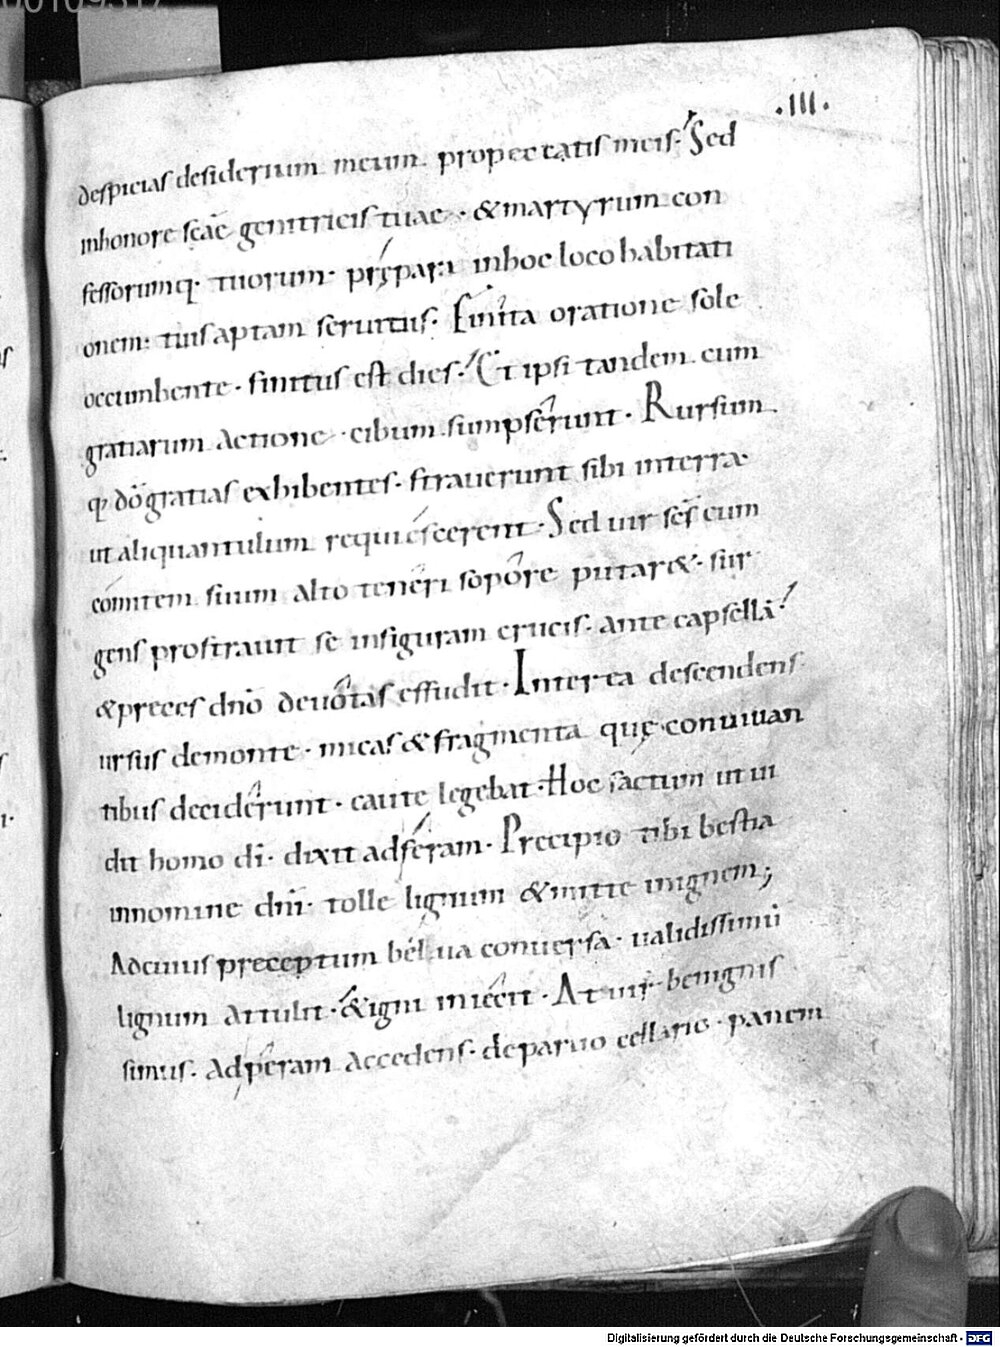 00109317
.III.
despicias desiderium meum propeccatis meis. Sed
inhonore scae genitricis tuae. &martyrum con
fessorumq. tuorum. prępara inhoc loco habitati
onem. tuis aptam seruitus. Finita oratione sole
occumbente. finitus est dies. Et ipsi tandem cum
gratiarum actione. cibum sumpserunt. Rursum
q. dō gratias exhibentes. strauerunt sibi interra.
ut aliquantulum requiescerent. Sed uir scs cum
comitem suum alto teneri sopore putar&. sur
gens prostrauit se infiguram crucis. ante capsellā.
&preces dno deuotas effudit. Interea descendens
ursus demonte. micas &fragmenta quę conuiuan
tibus deciderunt. caute legebat. Hoc factum ut ui
dit homo di. dixit adferam. Precipio tibi bestia
innomine dni. tolle lignum &mitte inignem;
Adcuius preceptum belua conuersa. ualidissimū
lignum attulit. &igni iniecit. At uir benignis
simus. adferam accedens. deparuo cellario. panem
Digitalisierung gefördert durch die Deutsche Forschungsgemeinschaft - DFG